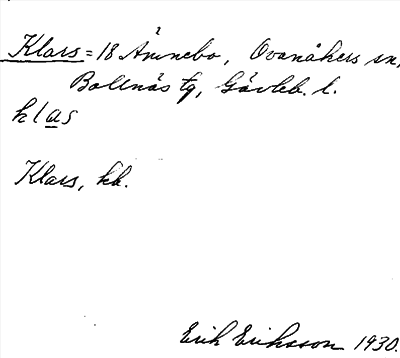 Klars = 18 Ämnebo, Ovanåkers sn,
Bollnäs tg, Gävleb. l.
klas
Klars, kb.
Erik Eriksson 1930.